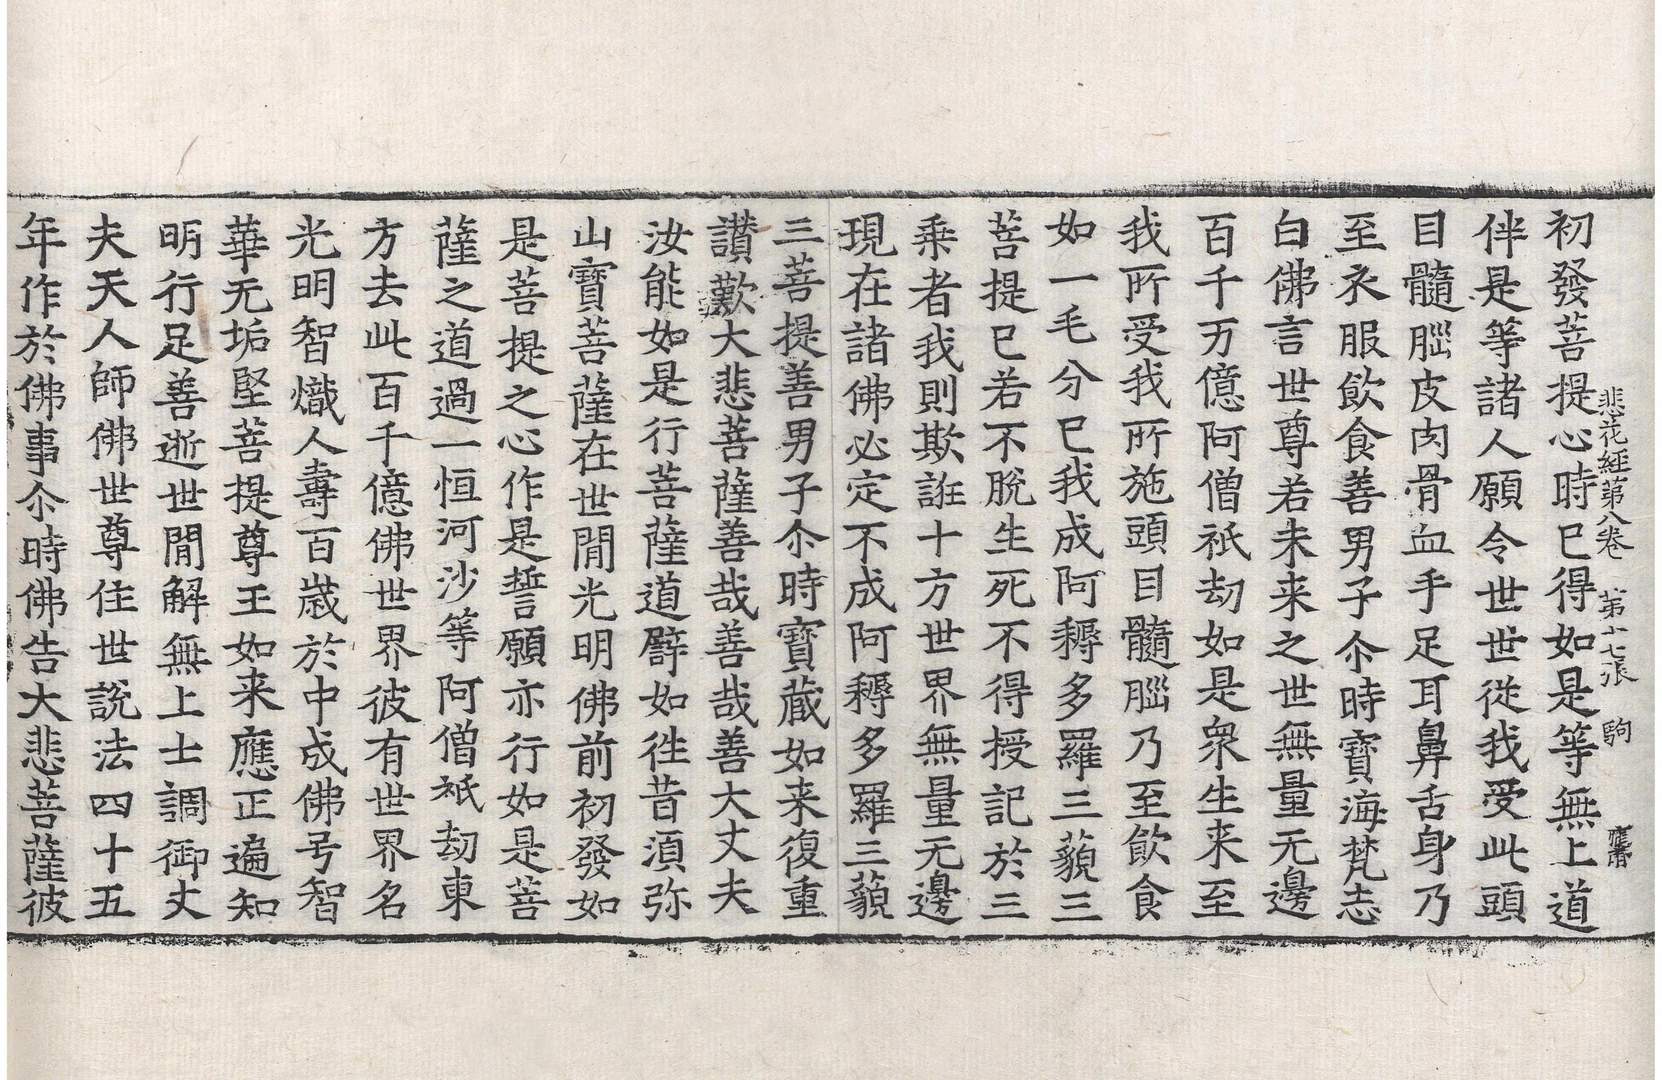 悲花經第八卷 第十七張 駒
初發菩提心時已得如是等無上道
伴是等諸人願令世世從我受此頭
目髓腦皮肉骨血手足耳鼻舌身乃
至衣服飲食善男子尒時寶海梵志
白佛言世尊若未来之世無量无邊
百千万億阿僧祇劫如是衆生来至
我所受我所施頭目髓腦乃至飲食
如一毛分已我成阿耨多羅三藐三
菩提已若不脫生死不得授記於三
乗者我則欺誑十方世界無量无邊
現在諸佛必定不成阿耨多羅三藐
三菩提善男子尒時寶藏如来復重
讃歎大悲菩薩善哉善哉善大丈夫
汝能如是行菩薩道譬如徃昔湏弥
山寶菩薩在世閒光明佛前初發如
是菩提之心作是誓願亦行如是菩
薩之道過一恒河沙等阿僧祇劫東
方去此百千億佛世界彼有世界名
光明智熾人壽百歲於中成佛号智
華无垢堅菩提尊王如来應正遍知
明行足善逝世閒解無上士調御丈
夫天人師佛世尊住世説法四十五
年作於佛事尒時佛告大悲菩薩彼